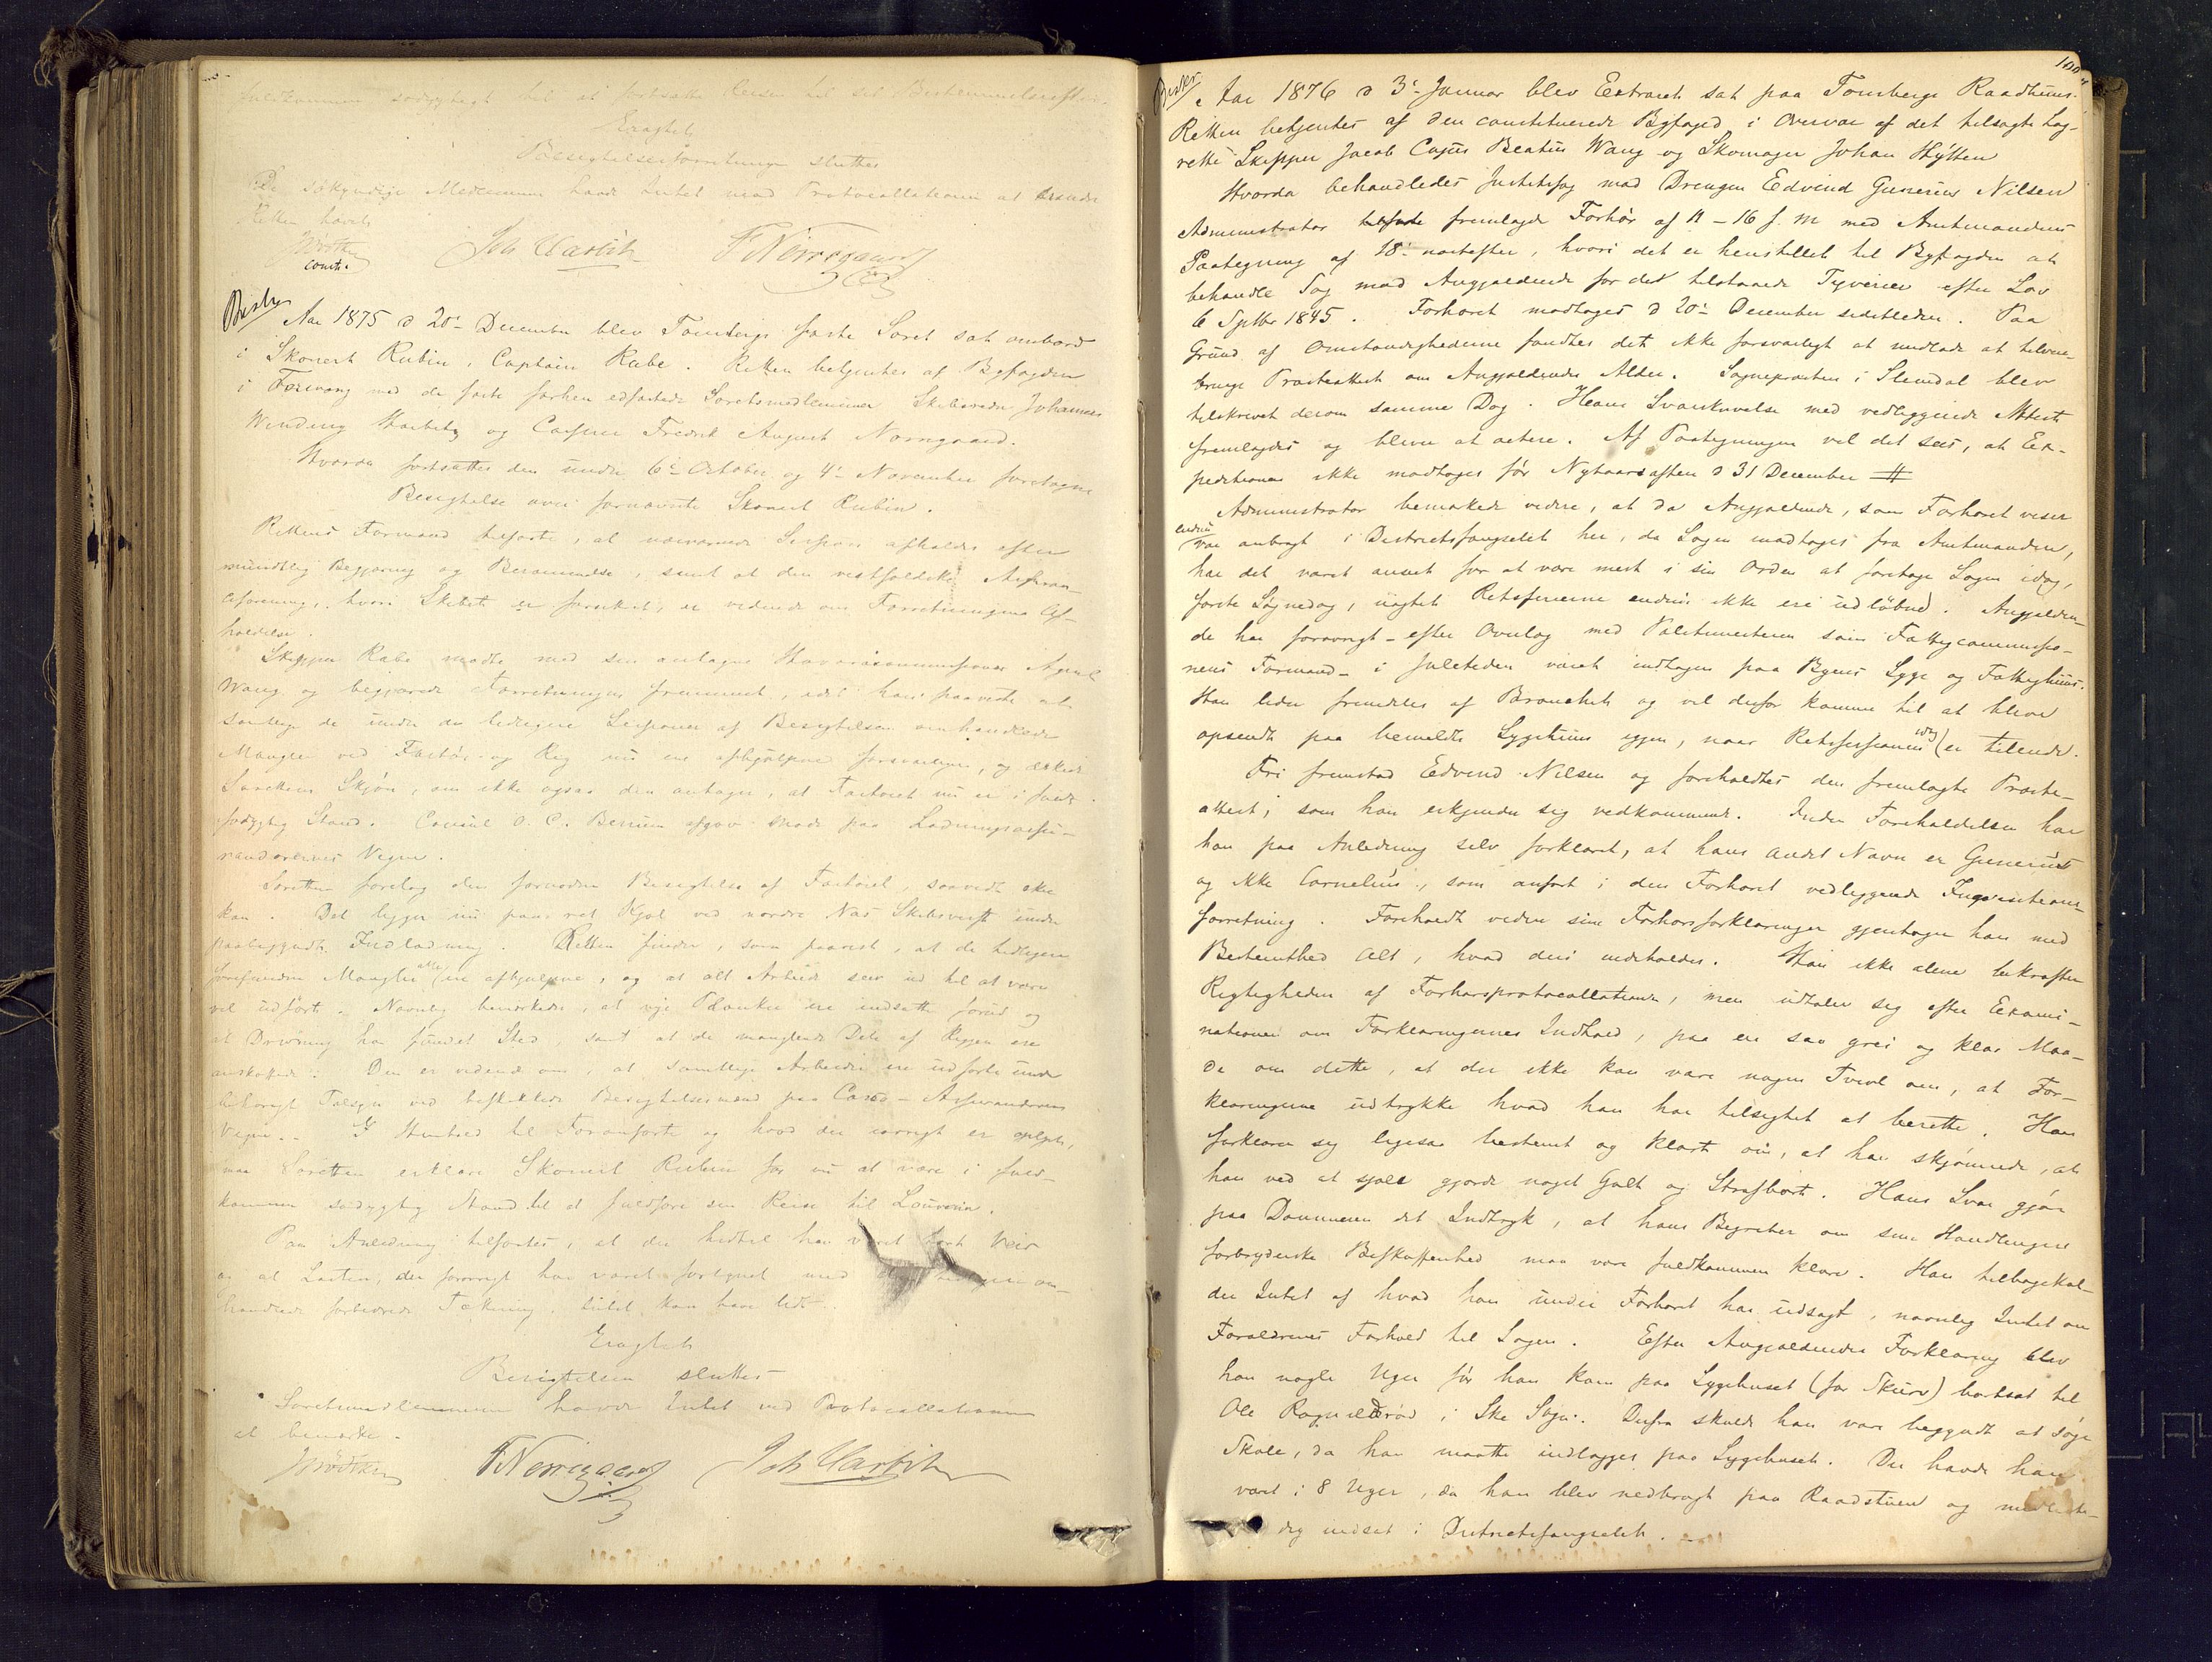 fuldkommen södygtigt til at fortsætte Reisen til sit Bestemmelsessted.
Eragtet
Besigtelsesforretningen sluttet
De sökyndige Medlemmer havde Intet mod Protocollationen at erindre
Retten hævet
const.
Joh Harbitz FNörregaard
Aar 1875 d 20de December blev Tønsbergs faste Søret sat ombord
i Skonert Rubin, Captain Rabe. Retten betjentes af Byfogden
i Forening med de faste forhen edfæstede Søretsmedlemmer Skibsreder Johannes
Winding Harbitz og Casper Fredrik August Nørregaard.
Hvorda fortsattes den under 6te October og 4de November foretagne
Besigtelse over fornævnte Skonert Rubin.
Rettens Formand tilførte, at nærværende Session afholdes efter
mundtlig Begjæring og Berammelse, samt at den vestfoldske Assuran-
ceforening, hvori Skibet er forsikret, er vidende om Forretningens Af-
holdelse.
Skipper Rabe mødte med sin antagne Havaricommissionær Agent
Wang og begjærede Forretningen fremmet, idet han paaviste at
samtlige de under de tidligere Sessioner af Besigtelsen omhandlede
Mangler ved Fartöi og Rig nu ere afhjulpne forsvarligen, og æskede
Sørettens Skjøn, om ikke ogsaa den antager, at Fartøiet nu er i fuldt
sødygtig Stand. Consul O. C. Bersum afgav Møde paa Ladningsassu-
randeurernes Vegne.
Søretten foretog den fornødne Besigtelse af Fartöiet, saavidt ske
kan. Det ligger nu paa ret Kjøl ved nordre Næs Skibsverft under
paabegyndt Indladning. Retten finder, som paavist, at de tidligere
forefundne Mangler alle ere afhjulpne, og at alt Arbeide seer ud til at være
vel udført. Navnlig bemærkedes, at nye Planker ere indsatte forud og
at Drivning har fundet Sted, samt at de manglende Dele af Riggen ere
anskaffede. Den er vidende om, at samtlige Arbeider ere udførte under
behørigt Tilsyn ved beskikkede Besigtelsesmænd paa Casco-Assurandørens
Vegne. I Henhold til Foranførte og hvad der iøvrigt er oplyst,
maa Søretten erklære Skonert Rubin for nu at være i fuld-
kommen sødygtig Stand til at fuldføre sin Reise til
Paa Anledning tilførtes, at der hidtil har været Veir
og at Lasten, der forøvrigt har været forsynet med
handlede forbedrede Tækning, intet kan have lidt.
Eragtet
Besigtelsen sluttet
Søretsmedlemmerne havde Intet ved Protocollationen
at bemærke.
FNörregaard Joh Harbitz
100
Aar 1876 d 3de Januar blev Extraret sat paa Tønsbergs Raadhuus.
Retten betjentes af den constituerede Byfoged i Overvær af det tilsagte Lag-
rette Skipper Jacob Cajus Beatus Wang og Skomager Johan Hytten
Hvorda behandledes Justitssag mod Drengen Edvind Gunerius Nilsen
Administrator tilførte fremlagde Forhör af 11-16 f. M med Amtmandens
Paategning af 18de næstefter, hvori det er henstillet til Byfogden at
behandle Sag mod Angjældende for det tilstaaede Tyverier efter Lov
6 Septbr 1845. Forhøret modtoges d 20de December sidstleden. Paa
Grund af Omstændighederne fandtes det ikke forsvarligt at undlade at tilveie-
bringe Præsteattest om Angjældendes Alder. Sognepræsten i Slemdal blev
tilskrevet derom samme Dag. Hans Svarskrivelse med vedliggende Attest
fremlagdes og bliver at actere. Af Paategningen vil det sees, at Ex-
peditionen ikke modtoges før Nytaarsaften d 31 December #
Administrator bemærkede videre, at da Angjældende, som Forhøret viser
endnu var anbragt i Districtsfængselet her, da Sagen modtoges fra Amtmanden,
har det været anseet for at være mest i sin Orden at foretage Sagen idag,
første Søgnedag, uagtet Retsferierne endnu ikke ere udløbne. Angjælden-
de har forøvrigt – efter Overlæg med Politimesteren som Fattigcommissio-
nens Formand – i Juletiden været indtagen paa Byens Syge og Fattighuus.
Han lider fremdeles af Bronchit og vil derfor komme til at blive
opsendt paa bemeldte Sygehuus igjen, naar Retssessionen idag er tilende.
Fri fremstod Edvind Nilsen og foreholdtes den fremlagte Præste-
attest, som han erkjender sig vedkommende. Under Foreholdelsen har
han paa Anledning selv forklaret, at hans andet Navn er Gunerius
og ikke Cornelius, som anført i den Forhøret vedliggende Inqvisitions-
forretning. Foreholdt videre sine Forhørsforklaringer gjentager han med
Bestemthed Alt, hvad deri indeholdes. Han ikke alene bekræfter
Rigtigheden af Forhørsprotocollationen, men udtaler sig efter Exami-
nationen om Forklaringernes Indhold, paa en saa grei og klar Maa-
de om dette, at der ikke kan være nogen Tvivl om, at For-
klaringerne udtrykke hvad han har tilsigtet at berette. Han
forklarer sig ligesaa bestemt og klart om, at han skjønnede, at
han ved at stjæle gjorde noget Galt og Strafbart. Hans Svar gjør
paa Dommeren det Indtryk, at hans Begreber om sine Handlingers
forbryderske Beskaffenhed maa være fuldkommen klare. Han tilbagekal-
der Intet af hvad han under Forhøret har udsagt, navnlig Intet om
Forældrenes Forhold til Sagen. Efter Angjældendes Forklaring blev
han nogle Uger før han kom paa Sygehuset (for Skurv) bortsat til
Ole Ragnildrød i Ske Sogn. Derfra skulde han være begyndt at søge
Skole, da han maatte indlægges paa Sygehuset. Der havde han
været i 8 Uger, da han blev nedbragt paa Raadstuen og
dig indsat i Districtsfængselet.